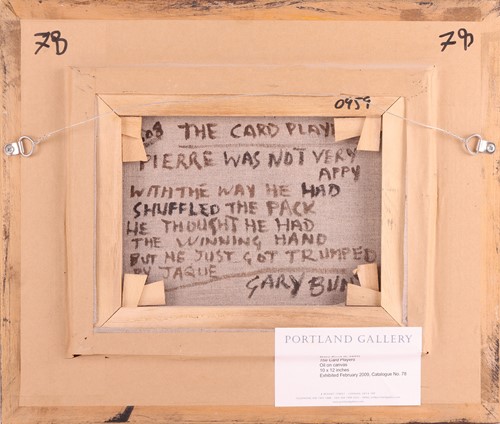 78
78
0959
THE CARD PLAY
PIERRE WAS NOT VERY
APPY
WITH THE WAY HE HAD
SHUFFLED THE PACK
HE THOUGHT HE HAD
THE WINNING HAND
BUT HE JUST GOT TRUMPED
BY JAQUE
GARY BUN
PORTLAND GALLERY
The Card Players
Oil on canvas
10 x 12 inches
Exhibited February 2009, Catalogue No. 78